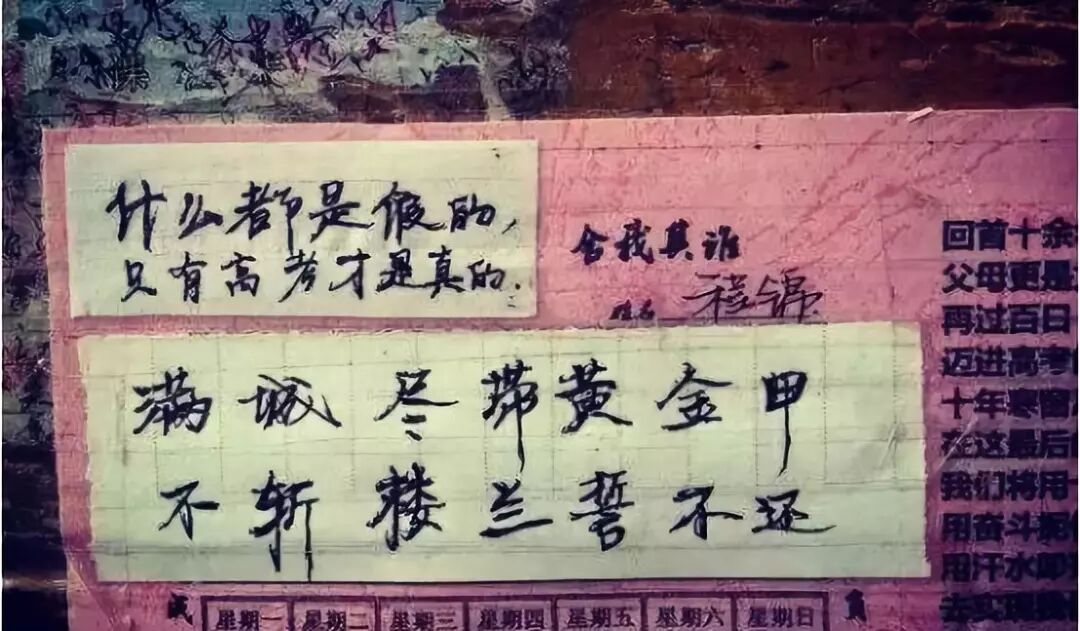 什么都是假的,
只有高考才是真的.
舍我其谁
姓名 程锦
满城尽带黄金甲
不斩楼兰誓不还
回首十余
父母更是
再过百日
迈进高考
十年寒窗
在这最后
我们将用
用奋斗
用汗水
去实现
成 星期一 星期二 星期三 星期四 星期五 星期六 星期日 负